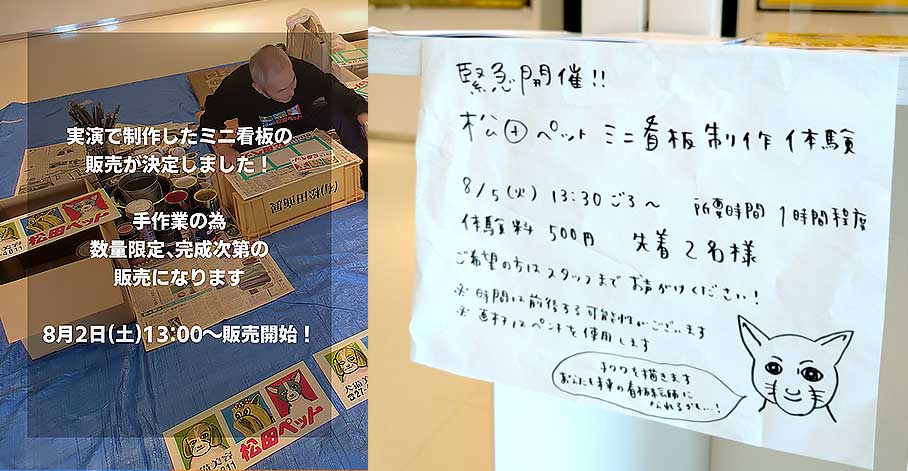 実演で制作したミニ看板の
販売が決定しました！
手作業の為
数量限定、完成次第の
販売になります
8月2日(土)13:00〜販売開始！
(有)松田商展
松田ペット
松田ペット
緊急開催!!
松田ペット ミニ看板制作体験
8/5(火) 13:30ごろ〜 所要時間 1時間程度
体験料 500円 先着2名様
ご希望の方はスタッフまでお声がけください!
※時間は前後する可能性がございます
※画材はペンキを使用します
を描きます
あなたも未来の看板絵師に
なれるかも…!